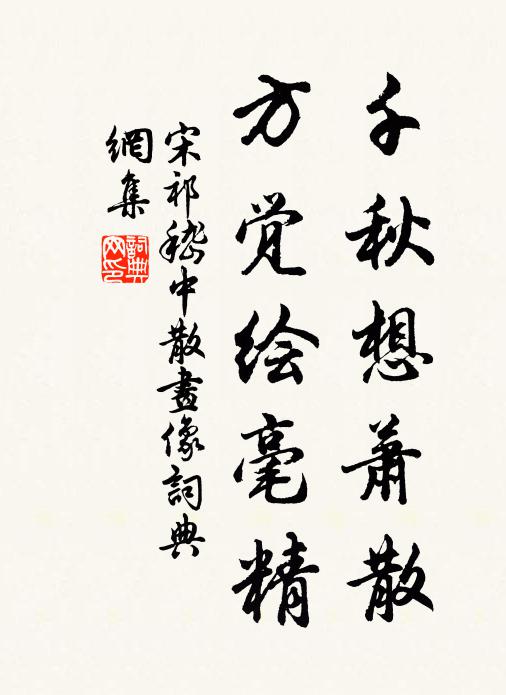 千秋想萧散
方觉绘毫精
宋祁嵇中散畫像詞典
網集
詞典
网印